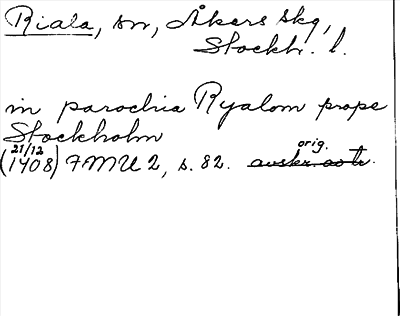 Riala, sn, Åkers skg,
Stockh. l.
in parochia Ryalom prope
Stockholm
21/12 orig.
(1408) FMU 2, s. 82. avskr. o tr.